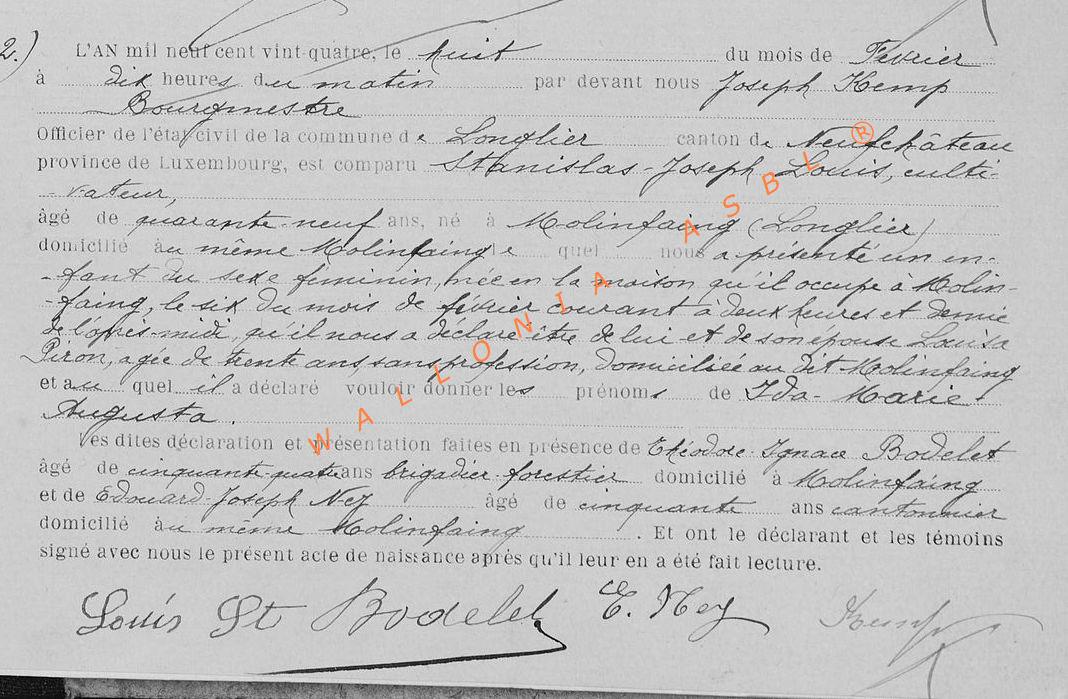 2.) L'AN mil neuf cent vint-quatre, le huit du mois de Février
à dix heures du matin par devant nous Joseph Kemp
Bourgmestre
Officier de l'état civil de la commune de Longlier canton de Neufchâteau
province de Luxembourg, est comparu Stanislas-Joseph Louis, culti-
-vateur,
âgé de quarante-neuf ans, né à Molinfaing (Longlier)
domicilié au même Molinfaing le quel nous a présenté un en-
-fant du sexe féminin, née en la maison qu'il occupe à Molin-
-faing, le six du mois de février courant à deux heures et demie
de l'après-midi, qu'il nous a déclaré être de lui et de son épouse Louisa
Piron, agée de trente ans, sans profession, domiciliée au dit Molinfaing
et au quel il a déclaré vouloir donner les prénoms de Ida-Marie-
Augusta.
Les dites déclaration et présentation faites en présence de Théodore-Ignace Bodelet
âgé de cinquante-quatre ans brigadier-forestier domicilié à Molinfaing
et de Edouard-Joseph Ney âgé de cinquante ans cantonnier
domicilié au même Molinfaing. Et ont le déclarant et les témoins
signé avec nous le présent acte de naissance après qu'il leur en a été fait lecture.
Louis St Bodelet E. Ney Kemp
WALLONIA ASBL ®